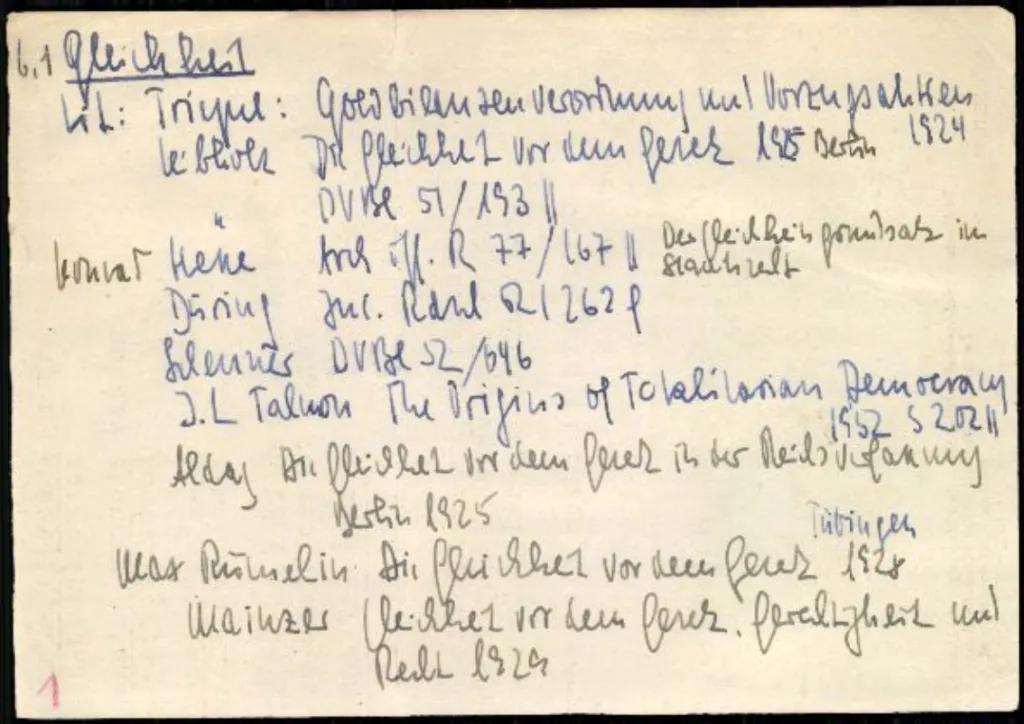 6,1 Gleichheit
Lit: Triepel: Goldbilanzenverordnung und Vorzugsaktien
1924
Leibholz Die Gleichheit vor dem Gesetz 1925 Berlin
" DVBl 51/193 ||
Konrad Hesse Arch öff. R 77/167 || Der Gleichheitsgrundsatz im
Staatsrecht
Düring Jur. Rdsch 52/262 f
DVBl 52/646
J.L Talmon The Origins of Totalitarian Democracy
1952 S 202 ||
Aldag Die Gleichheit vor dem Gesetz in der Reichsverfassung
Berlin 1925
Tübingen
Max Rümelin Die Gleichheit vor dem Gesetz 1928
Mainzer Gleichheit vor dem Gesetz, Gerechtigkeit und
Recht 1929
1